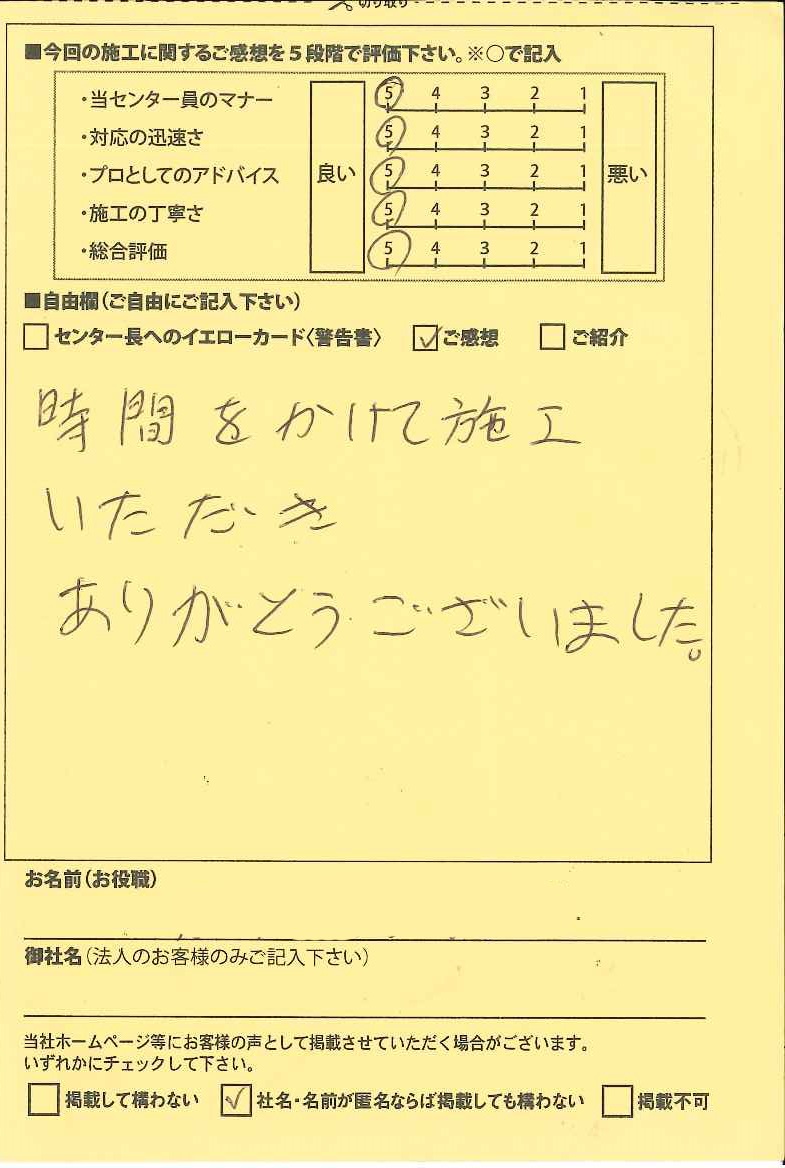 切り取り
■今回の施工に関するご感想を5段階で評価下さい。※○で記入
・当センター員のマナー 5 4 3 2 1
・対応の迅速さ 5 4 3 2 1
・プロとしてのアドバイス 良い 5 4 3 2 1 悪い
・施工の丁寧さ 5 4 3 2 1
・総合評価 5 4 3 2 1
■自由欄(ご自由にご記入下さい)
センター長へのイエローカード〈警告書〉 ご感想 ご紹介
時間をかけて施工
いただき
ありがとうございました。
お名前(お役職)
御社名(法人のお客様のみご記入下さい)
当社ホームページ等にお客様の声として掲載させていただく場合がございます。
いずれかにチェックして下さい。
掲載して構わない 社名・名前が匿名ならば掲載しても構わない 掲載不可